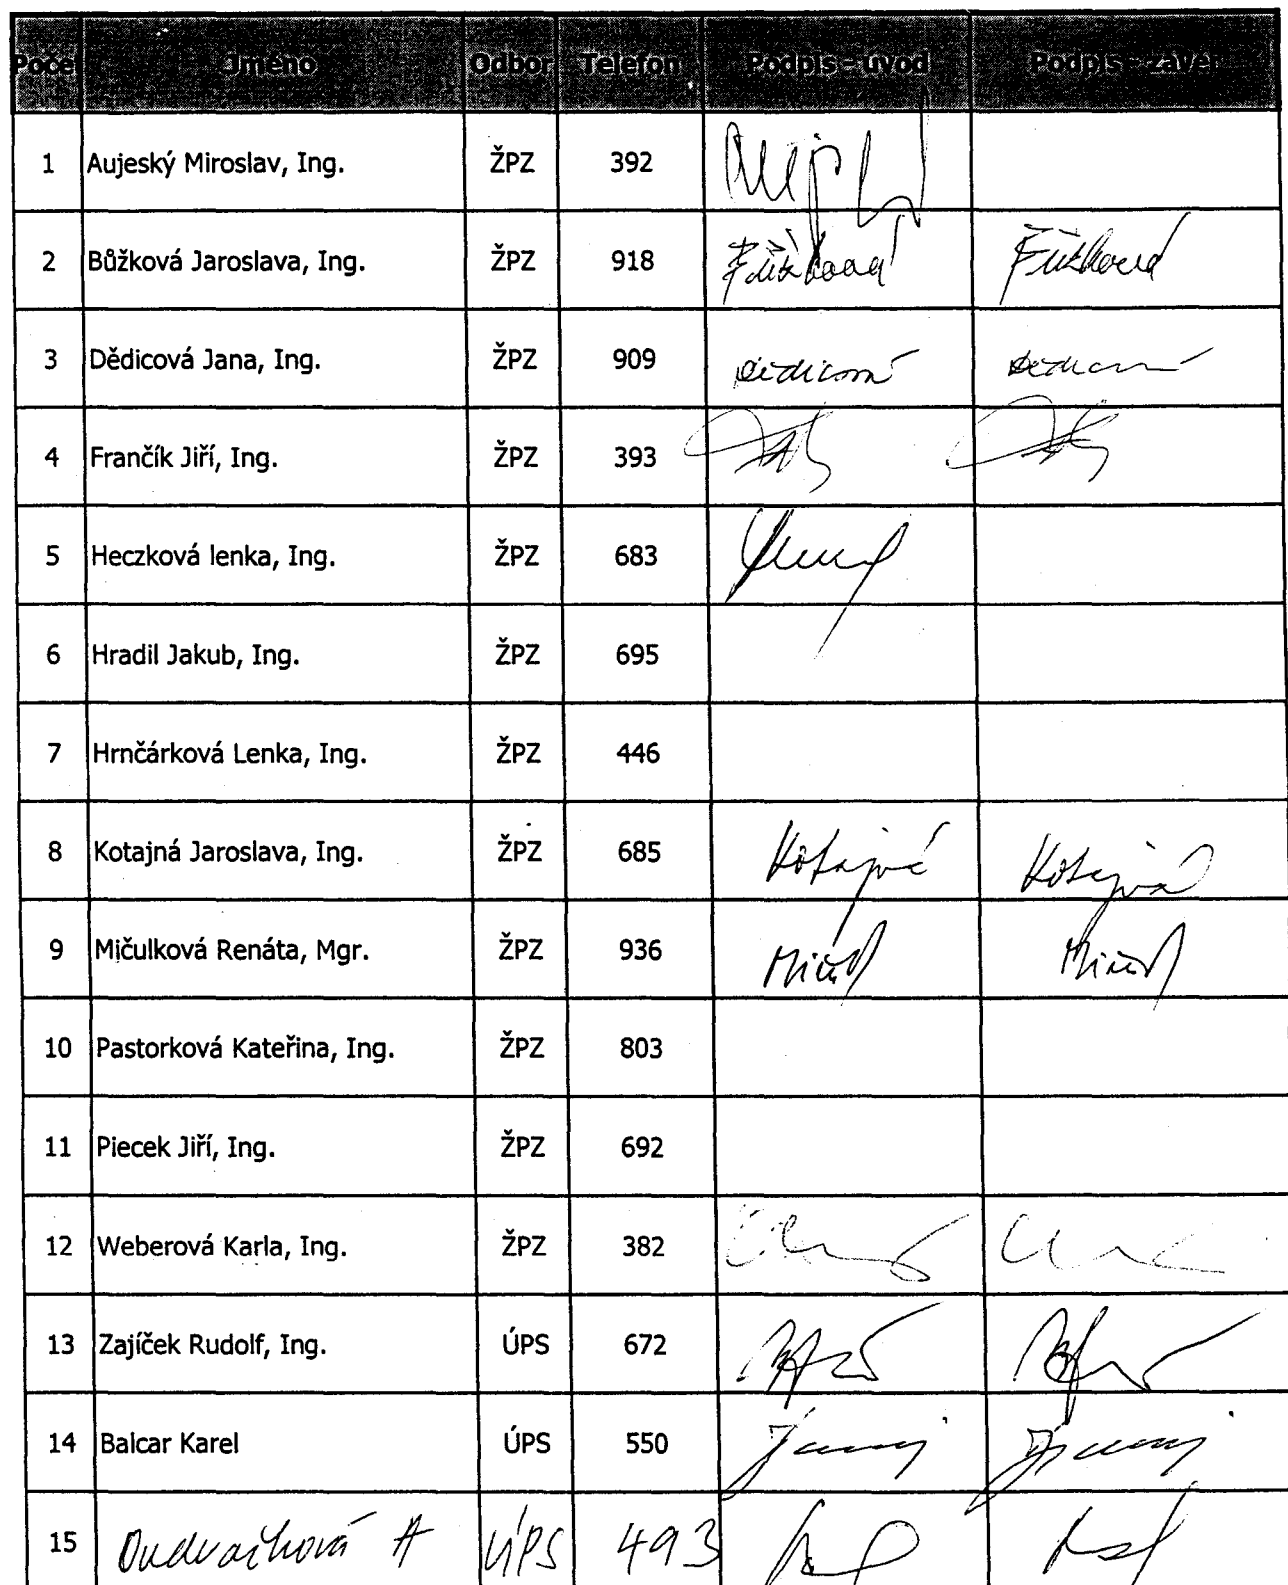 Počet Jméno Odbor Telefon Podpis - úvod Podpis - závěr
1 Aujeský Miroslav, Ing. ŽPZ 392
2 Bůžková Jaroslava, Ing. ŽPZ 918
3 Dědicová Jana, Ing. ŽPZ 909
4 Frančík Jiří, Ing. ŽPZ 393
5 Heczková lenka, Ing. ŽPZ 683
6 Hradil Jakub, Ing. ŽPZ 695
7 Hrnčárková Lenka, Ing. ŽPZ 446
8 Kotajná Jaroslava, Ing. ŽPZ 685
9 Mičulková Renáta, Mgr. ŽPZ 936
10 Pastorková Kateřina, Ing. ŽPZ 803
11 Piecek Jiří, Ing. ŽPZ 692
12 Weberová Karla, Ing. ŽPZ 382
13 Zajíček Rudolf, Ing. ÚPS 672
14 Balcar Karel ÚPS 550
15 Ondračková A ÚPS 493